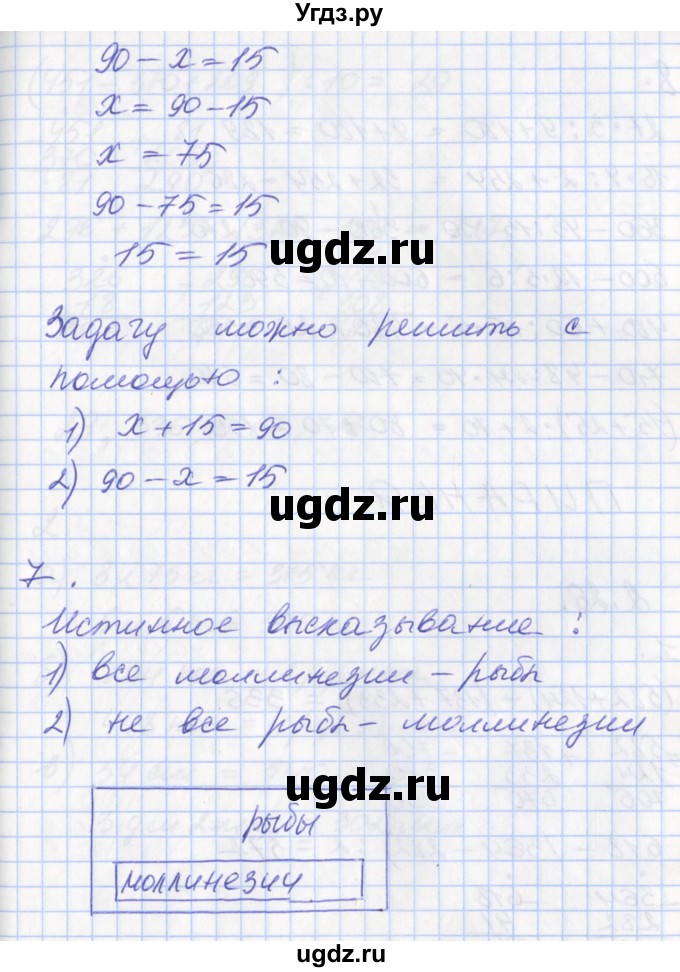 Угдз.ру
90 - x = 15
x = 90 - 15
x = 75
90 - 75 = 15
15 = 15
ugdz.ru
Задачу можно решить с
помощью :
1) x + 15 = 90
2) 90 - x = 15
ugdz.ru
7 .
Истинное высказывание :
1) все моллинезии - рыбы
2) не все рыбы - моллинезии
ugdz.ru
рыбы
моллинезии
ugdz.ru